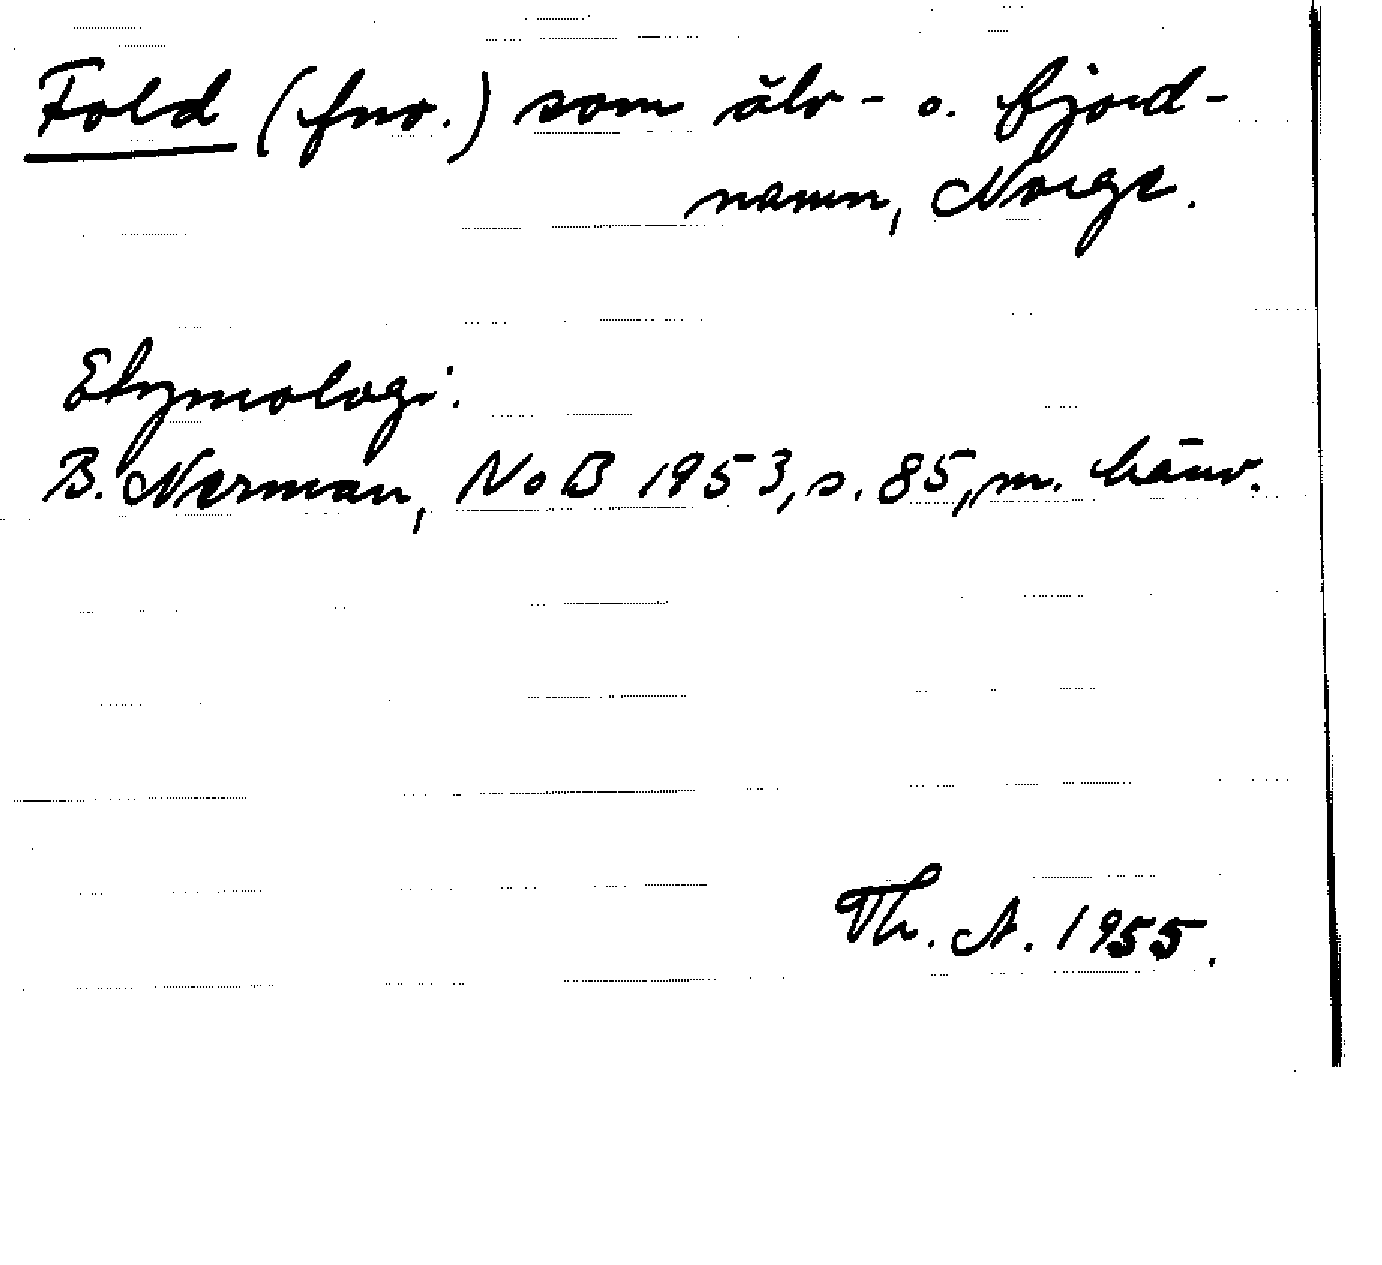 Fold (fno.) som älv- o. fjord-
namn, Norge.
Etymologi:
B. Nerman, NoB 1953, s. 85, m. hänv.
Th. A. 1955.